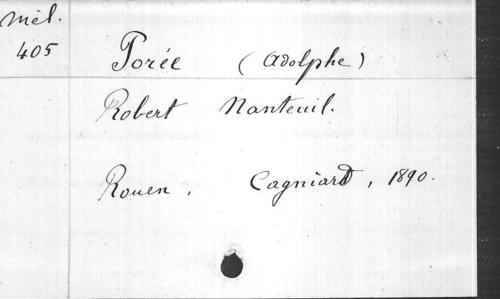 Mél.
405
Porée (Adolphe)
Robert Nanteuil.
Rouen, Cagniard, 1890.